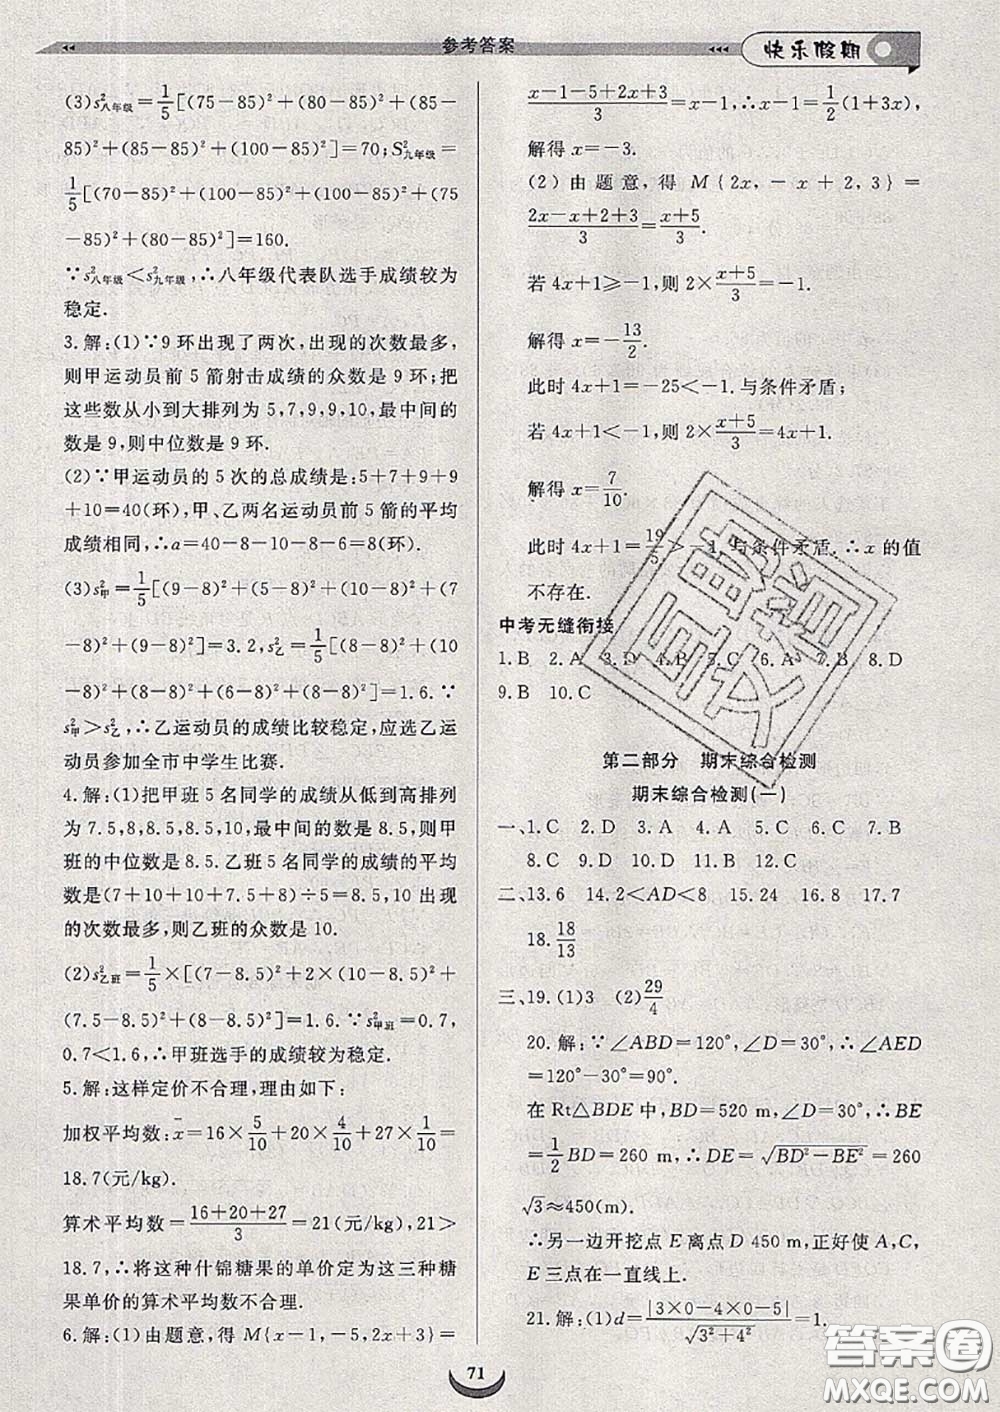 参考答案
快乐假期
(3)s²八年级=1/5[(75-85)²+(80-85)²+(85-
85)²+(85-85)²+(100-85)²]=70;S²九年级=
1/5[(70-85)²+(100-85)²+(100-85)²+(75
-85)²+(80-85)²]=160.
∵s²八年级<s²九年级,∴八年级代表队选手成绩较为
稳定.
3.解:(1)∵9环出现了两次,出现的次数最多,
则甲运动员前5箭射击成绩的众数是9环;把
这些数从小到大排列为5,7,9,9,10,最中间的
数是9,则中位数是9环.
(2)∵甲运动员的5次的总成绩是:5+7+9+9
+10=40(环),甲、乙两名运动员前5箭的平均
成绩相同,∴a=40-8-10-8-6=8(环).
(3)s²甲=1/5[(9-8)²+(5-8)²+(10-8)²+(7
-8)²+(9-8)²]=3.2,s²乙=1/5[(8-8)²+(10
-8)²+(8-8)²+(6-8)²+(8-8)²]=1.6.∵
s²甲>s²乙,∴乙运动员的成绩比较稳定,应选乙运
动员参加全市中学生比赛.
4.解:(1)把甲班5名同学的成绩从低到高排列
为7.5,8,8.5,8.5,10,最中间的数是8.5,则甲
班的中位数是8.5.乙班5名同学的成绩的平均
数是(7+10+10+7.5+8)÷5=8.5,10出现
的次数最多,则乙班的众数是10.
(2)s²乙班=1/5×[(7-8.5)²+2×(10-8.5)²+
(7.5-8.5)²+(8-8.5)²]=1.6.∵s²甲班=0.7,
0.7<1.6,∴甲班选手的成绩较为稳定.
5.解:这样定价不合理,理由如下:
加权平均数:x̄=16×5/10+20×4/10+27×1/10=
18.7(元/kg).
算术平均数=(16+20+27)/3=21(元/kg),21>
18.7,∴将这种什锦糖果的单价定为这三种糖
果单价的算术平均数不合理.
6.解:(1)由题意,得M{x-1,-5,2x+3}=
(x-1-5+2x+3)/3=x-1,∴x-1=1/2(1+3x),
解得x=-3.
(2)由题意,得M{2x,-x+2,3}=
(2x-x+2+3)/3=(x+5)/3.
若4x+1≥-1,则2×(x+5)/3=-1.
解得x=-13/2.
此时4x+1=-25<-1.与条件矛盾;
若4x+1<-1,则2×(x+5)/3=4x+1.
解得x=7/10.
此时4x+1=19/5>-1,与条件矛盾.∴x的值
不存在.
中考无缝衔接
1.B 2.A 3.D 4.B 5.C 6.A 7.B 8.D
9.B 10.C
第二部分 期末综合检测
期末综合检测(一)
一、1.C 2.D 3.A 4.A 5.C 6.C 7.B
8.C 9.D 10.D 11.B 12.C
二、13.6 14.2<AD<8 15.24 16.8 17.7
18.18/13
三、19.(1)3 (2)29/4
20.解:∵∠ABD=120°,∠D=30°,∴∠AED=
120°-30°=90°.
在Rt△BDE中,BD=520 m,∠D=30°,∴BE
=1/2BD=260 m,∴DE=√(BD²-BE²)=260
√3≈450(m).
∴另一边开挖点E离点D 450 m,正好使A,C,
E三点在一直线上.
21.解:(1)d=|3×0-4×0-5|/√(3²+4²)=1.
71
答案圈
MXQE.COM